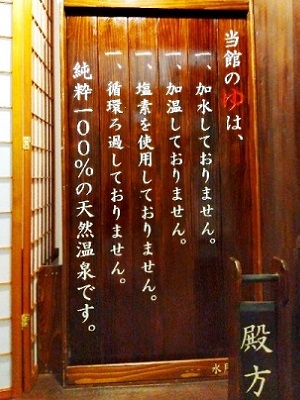 当館のゆは、
一、加水しておりません。
一、加温しておりません。
一、塩素を使用しておりません。
一、循環ろ過しておりません。
純粋一００％の天然温泉です。
殿方